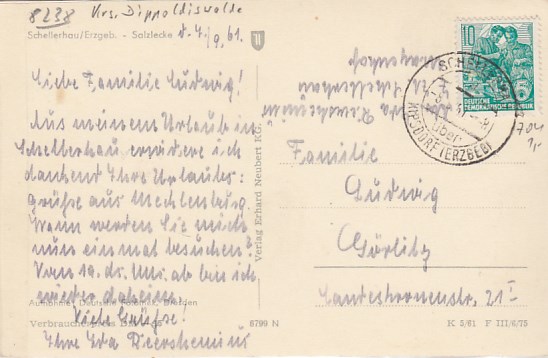 8238 Krs. Dippoldiswalde
Schellerhau/Erzgeb. - Salzlecke d. 4./9. 61.
Liebe Familie Ludwig!
Aus meinem Urlaub in
Schellerhau erwidere ich
dankend Ihre Urlaubs-
grüße aus Mecklenburg.
Wann werden Sie mich
nun einmal besuchen?
Vom 19. ds. Mts. ab bin ich
wieder daheim.
Viele Grüße!
Ihre Ida
Verlag Erhard Neubert KG.
Schellerhau
10
5
DEUTSCHE
DEMOKRATISCHE REPUBLIK
über
KIPSDORF (ERZGEB)
Familie
Ludwig
Görlitz
Landeskronenstr. 21 I
8799 N
K 5/61 F III/6/75